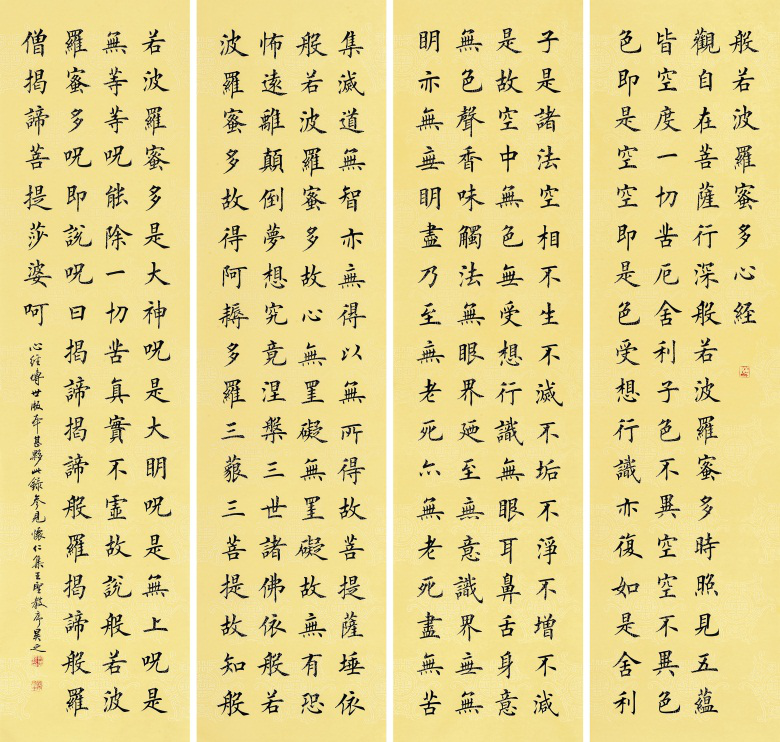 般若波羅蜜多心経
觀自在菩薩行深般若波羅蜜多時照見五蘊
皆空度一切苦厄舍利子色不異空空不異色
色即是空空即是色受想行識亦復如是舍利
子是諸法空相不生不滅不垢不淨不增不減
是故空中無色無受想行識無眼耳鼻舌身意
無色聲香味觸法無眼界廼至無意識界無無
眀亦無無眀盡乃至無老死亦無老死盡無苦
集滅道無智亦無得以無所得故菩提薩埵依
般若波羅蜜多故心無罣礙無罣礙故無有恐
怖遠離顛倒夢想究竟涅槃三世諸佛依般若
波羅蜜多故得阿耨多羅三藐三菩提故知般
若波羅蜜多是大神呪是大眀呪是無上呪是
無等等呪能除一切苦真實不虛故說般若波
羅蜜多呪即說呪曰揭諦揭諦般羅揭諦般羅
僧揭諦菩提莎婆呵
心經傳世版本甚夥此錄參見懷仁集王聖教序吳之